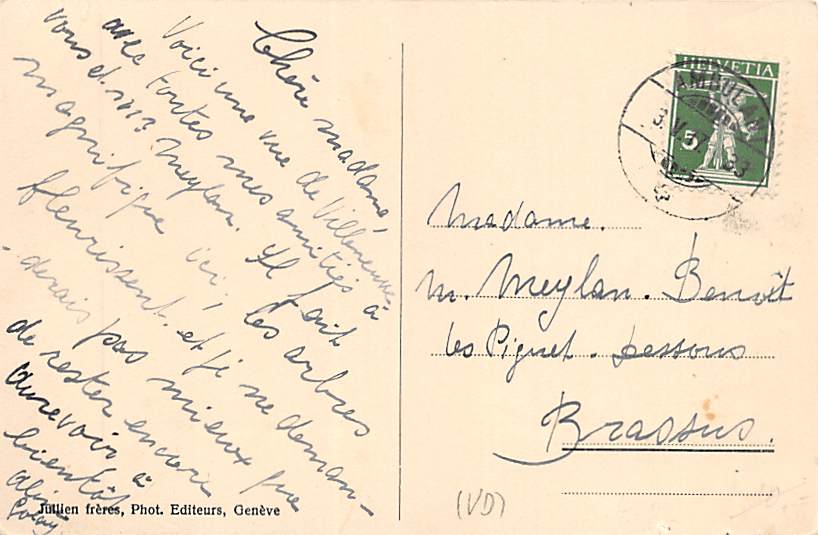 Chère madame,
Voici une vue de Villeneuve,
avec toutes mes amitiés à
vous et mr Meylan. Il fait
magnifique ici, les arbres
fleurissent. et je ne deman-
derais pas mieux que
de rester encore
aurevoir à
bientôt
HELVETIA
5
AMBULANT
3.V.
Madame.
M. Meylan. Benoît
les Piguet. Dessous
Brassus.
(VD)
Jullien frères, Phot. Editeurs, Genève